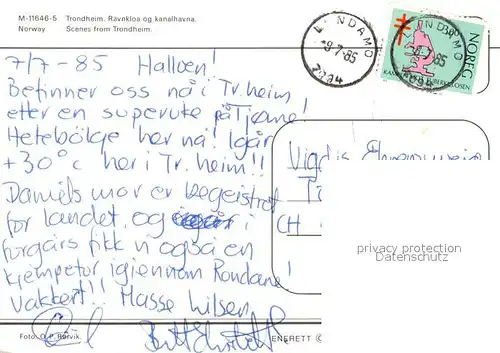 M-11646-5 Trondheim. Ravnkloa og kanalhavna.
Norway Scenes from Trondheim.
7/7-85 Halloen!
Befinner oss nå i Tr.heim
etter en supertute på Tjøme!
Hetebölge her nå! Igår
+30°c her i Tr.heim!!
Daniels mor er begeistret
for landet, og i
forgårs fikk vi også en
kjempetur igjennom Rondane!
Vakkert!! Masse hilsen
Foto: O. P. Rørvik.
ENERETT ©
-9.7.85
NOREG
Vigdis
CH
privacy protection
Datenschutz